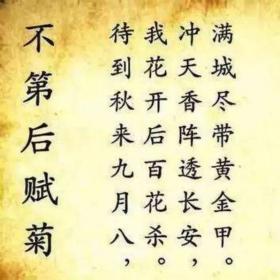 不第后赋菊
待到秋来九月八，
我花开后百花杀。
冲天香阵透长安，
满城尽带黄金甲。